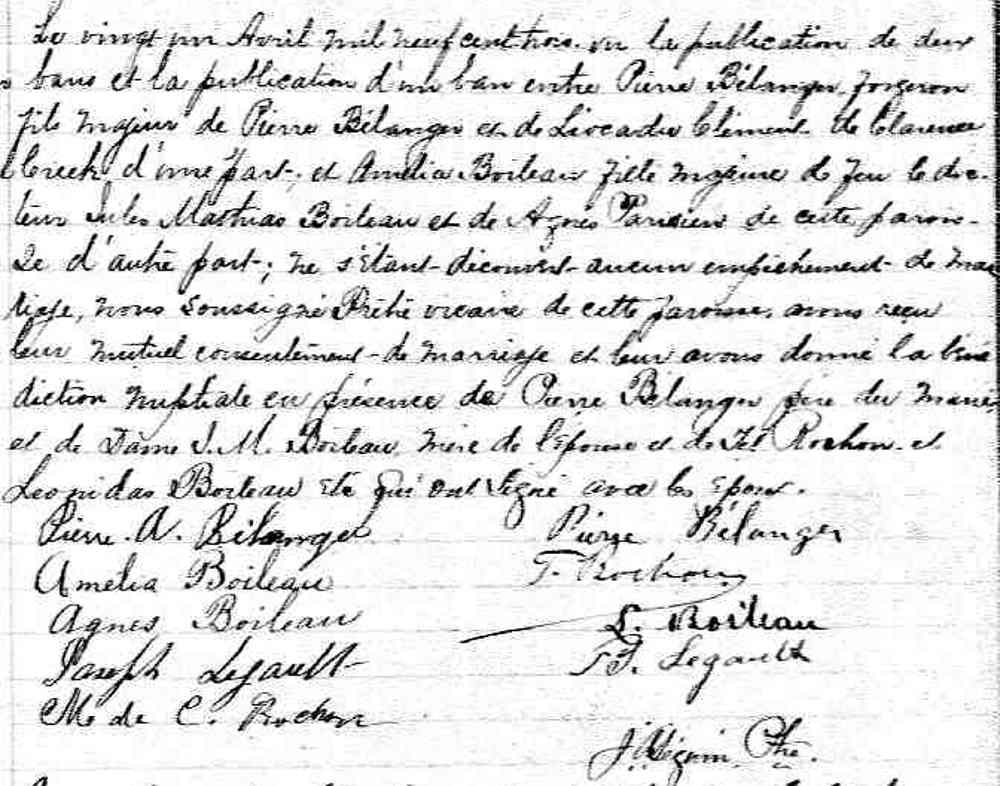 Le vingt un Avril mil neuf cent trois. vu la publication de deux
bans et la publication d'un ban entre Pierre Bélanger, forgeron
fils majeur de Pierre Bélanger et de Léocadie Clément de Clarence
Creek, d'une part; et Amélia Boileau fille majeure de feu le doc-
teur Jules Mathias Boileau et de Agnès Parisien de cette parois-
se d'autre part; ne s'étant découvert aucun empêchement de ma
riage, nous soussigné Prêtre vicaire de cette paroisse, avons reçu
leur mutuel consentement de marriage et leur avons donné la béné
diction nuptiale en présence de Pierre Bélanger père du marié,
et de Dame J. M. Boileau, mère de l'épouse et de Rochon et
Leonidas Boileau qui ont signé avec les époux.
Pierre. A. Bélanger Pierre Bélanger
Amelia Boileau T. Rochon
Agnes Boileau L. Boileau
Joseph Legault Legault
de C. Rochon
Ptre.